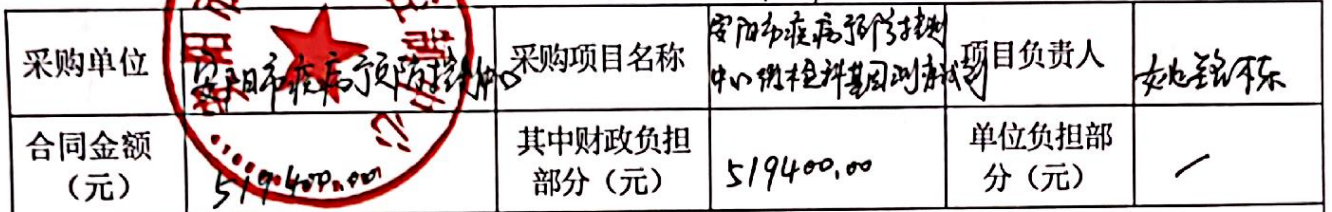 采购单位
安阳市疾病预防控制中心
采购项目名称
安阳市疾病预防控制
中心微检科基因测序试剂
项目负责人
合同金额
（元）
519400.00
其中财政负担
部分（元）
519400.00
单位负担部
分（元）
/